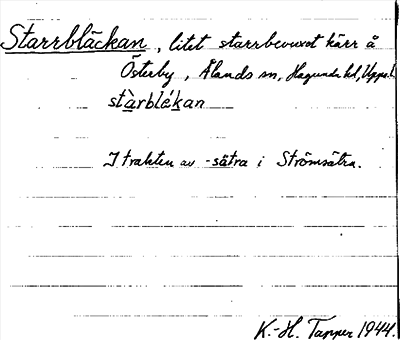 Starrbläckan, litet starrbevuxet kärr å
Österby, Ålands sn, Hagunda hd, Upps. l.
stàrblék̲an
I trakten av -sätra i Strömsätra.
K.-H. Tapper 1944.